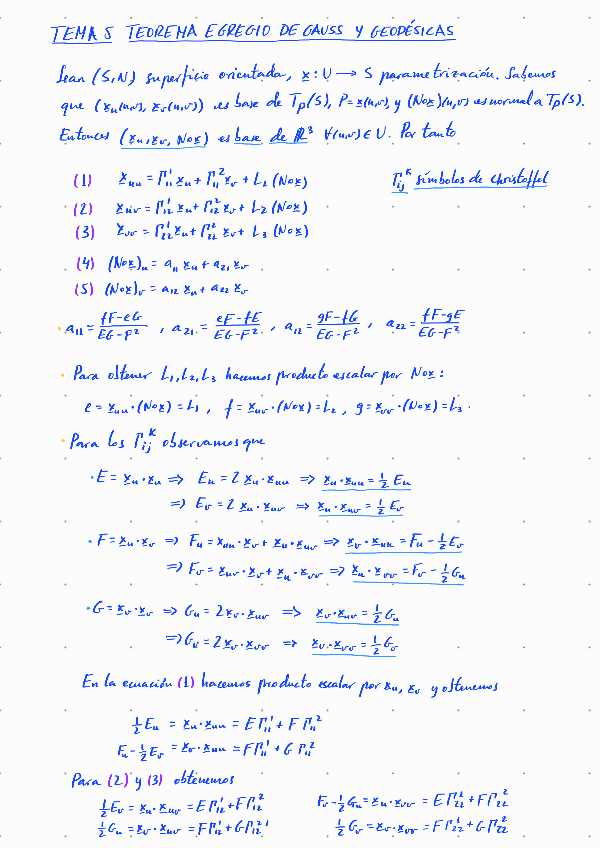 TEMA 5 TEOREMA EGREGIO DE GAUSS Y GEODÉSICAS
Sean (S,N) superficie orientada, x: U → S parametrización. Sabemos
que (x_u(u,v), x_v(u,v)) es base de T_p(S), P=x(u,v), y (N∘x)(u,v) es normal a T_p(S).
Entonces (x_u, x_v, N∘x) es base de ℝ³ ∀(u,v) ∈ U. Por tanto
(1) x_uu = Γ₁₁¹ x_u + Γ₁₁² x_v + L₁ (N∘x)
Γ_ij^K símbolos de christoffel
(2) x_uv = Γ₁₂¹ x_u + Γ₁₂² x_v + L₂ (N∘x)
(3) x_vv = Γ₂₂¹ x_u + Γ₂₂² x_v + L₃ (N∘x)
(4) (N∘x)_u = a₁₁ x_u + a₂₁ x_v
(5) (N∘x)_v = a₁₂ x_u + a₂₂ x_v
· a₁₁ = (fF-eG)/(EG-F²) , a₂₁ = (eF-fE)/(EG-F²) , a₁₂ = (gF-fG)/(EG-F²) , a₂₂ = (fF-gE)/(EG-F²)
· Para obtener L₁, L₂, L₃ hacemos producto escalar por N∘x :
e = x_uu · (N∘x) = L₁ , f = x_uv · (N∘x) = L₂ , g = x_vv · (N∘x) = L₃ .
· Para los Γ_ij^K observamos que
· E = x_u · x_u ⇒ E_u = 2 x_u · x_uu ⇒ x_u · x_uu = ½ E_u
⇒ E_v = 2 x_u · x_uv ⇒ x_u · x_uv = ½ E_v
· F = x_u · x_v ⇒ F_u = x_uu · x_v + x_u · x_uv ⇒ x_v · x_uu = F_u - ½ E_v
⇒ F_v = x_uv · x_v + x_u · x_vv ⇒ x_u · x_vv = F_v - ½ G_u
· G = x_v · x_v ⇒ G_u = 2 x_v · x_uv ⇒ x_v · x_uv = ½ G_u
⇒ G_v = 2 x_v · x_vv ⇒ x_v · x_vv = ½ G_v
En la ecuación (1) hacemos producto escalar por x_u, x_v y obtenemos
½ E_u = x_u · x_uu = E Γ₁₁¹ + F Γ₁₁²
F_u - ½ E_v = x_v · x_uu = F Γ₁₁¹ + G Γ₁₁²
Para (2) y (3) obtenemos
½ E_v = x_u · x_uv = E Γ₁₂¹ + F Γ₁₂²
F_v - ½ G_u = x_u · x_vv = E Γ₂₂¹ + F Γ₂₂²
½ G_u = x_v · x_uv = F Γ₁₂¹ + G Γ₁₂²
½ G_v = x_v · x_vv = F Γ₂₂¹ + G Γ₂₂²